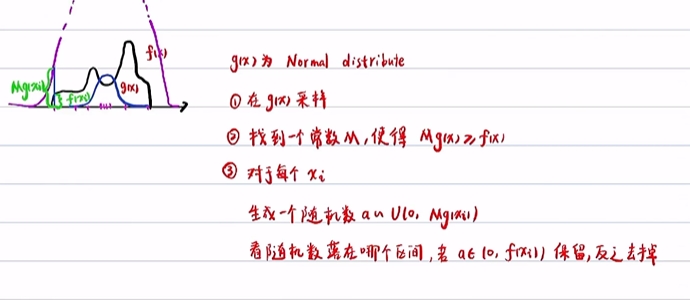 f(x)
Mg(xi)
f(xi)
g(x)
g(x)为 Normal distribute
① 在 g(x) 采样
② 找到一个常数M,使得 Mg(x)≥f(x)
③ 对于每个 xi
生成一个随机数 a~U(0, Mg(xi))
看随机数落在哪个区间,若 a∈(0, f(xi)) 保留,反之去掉